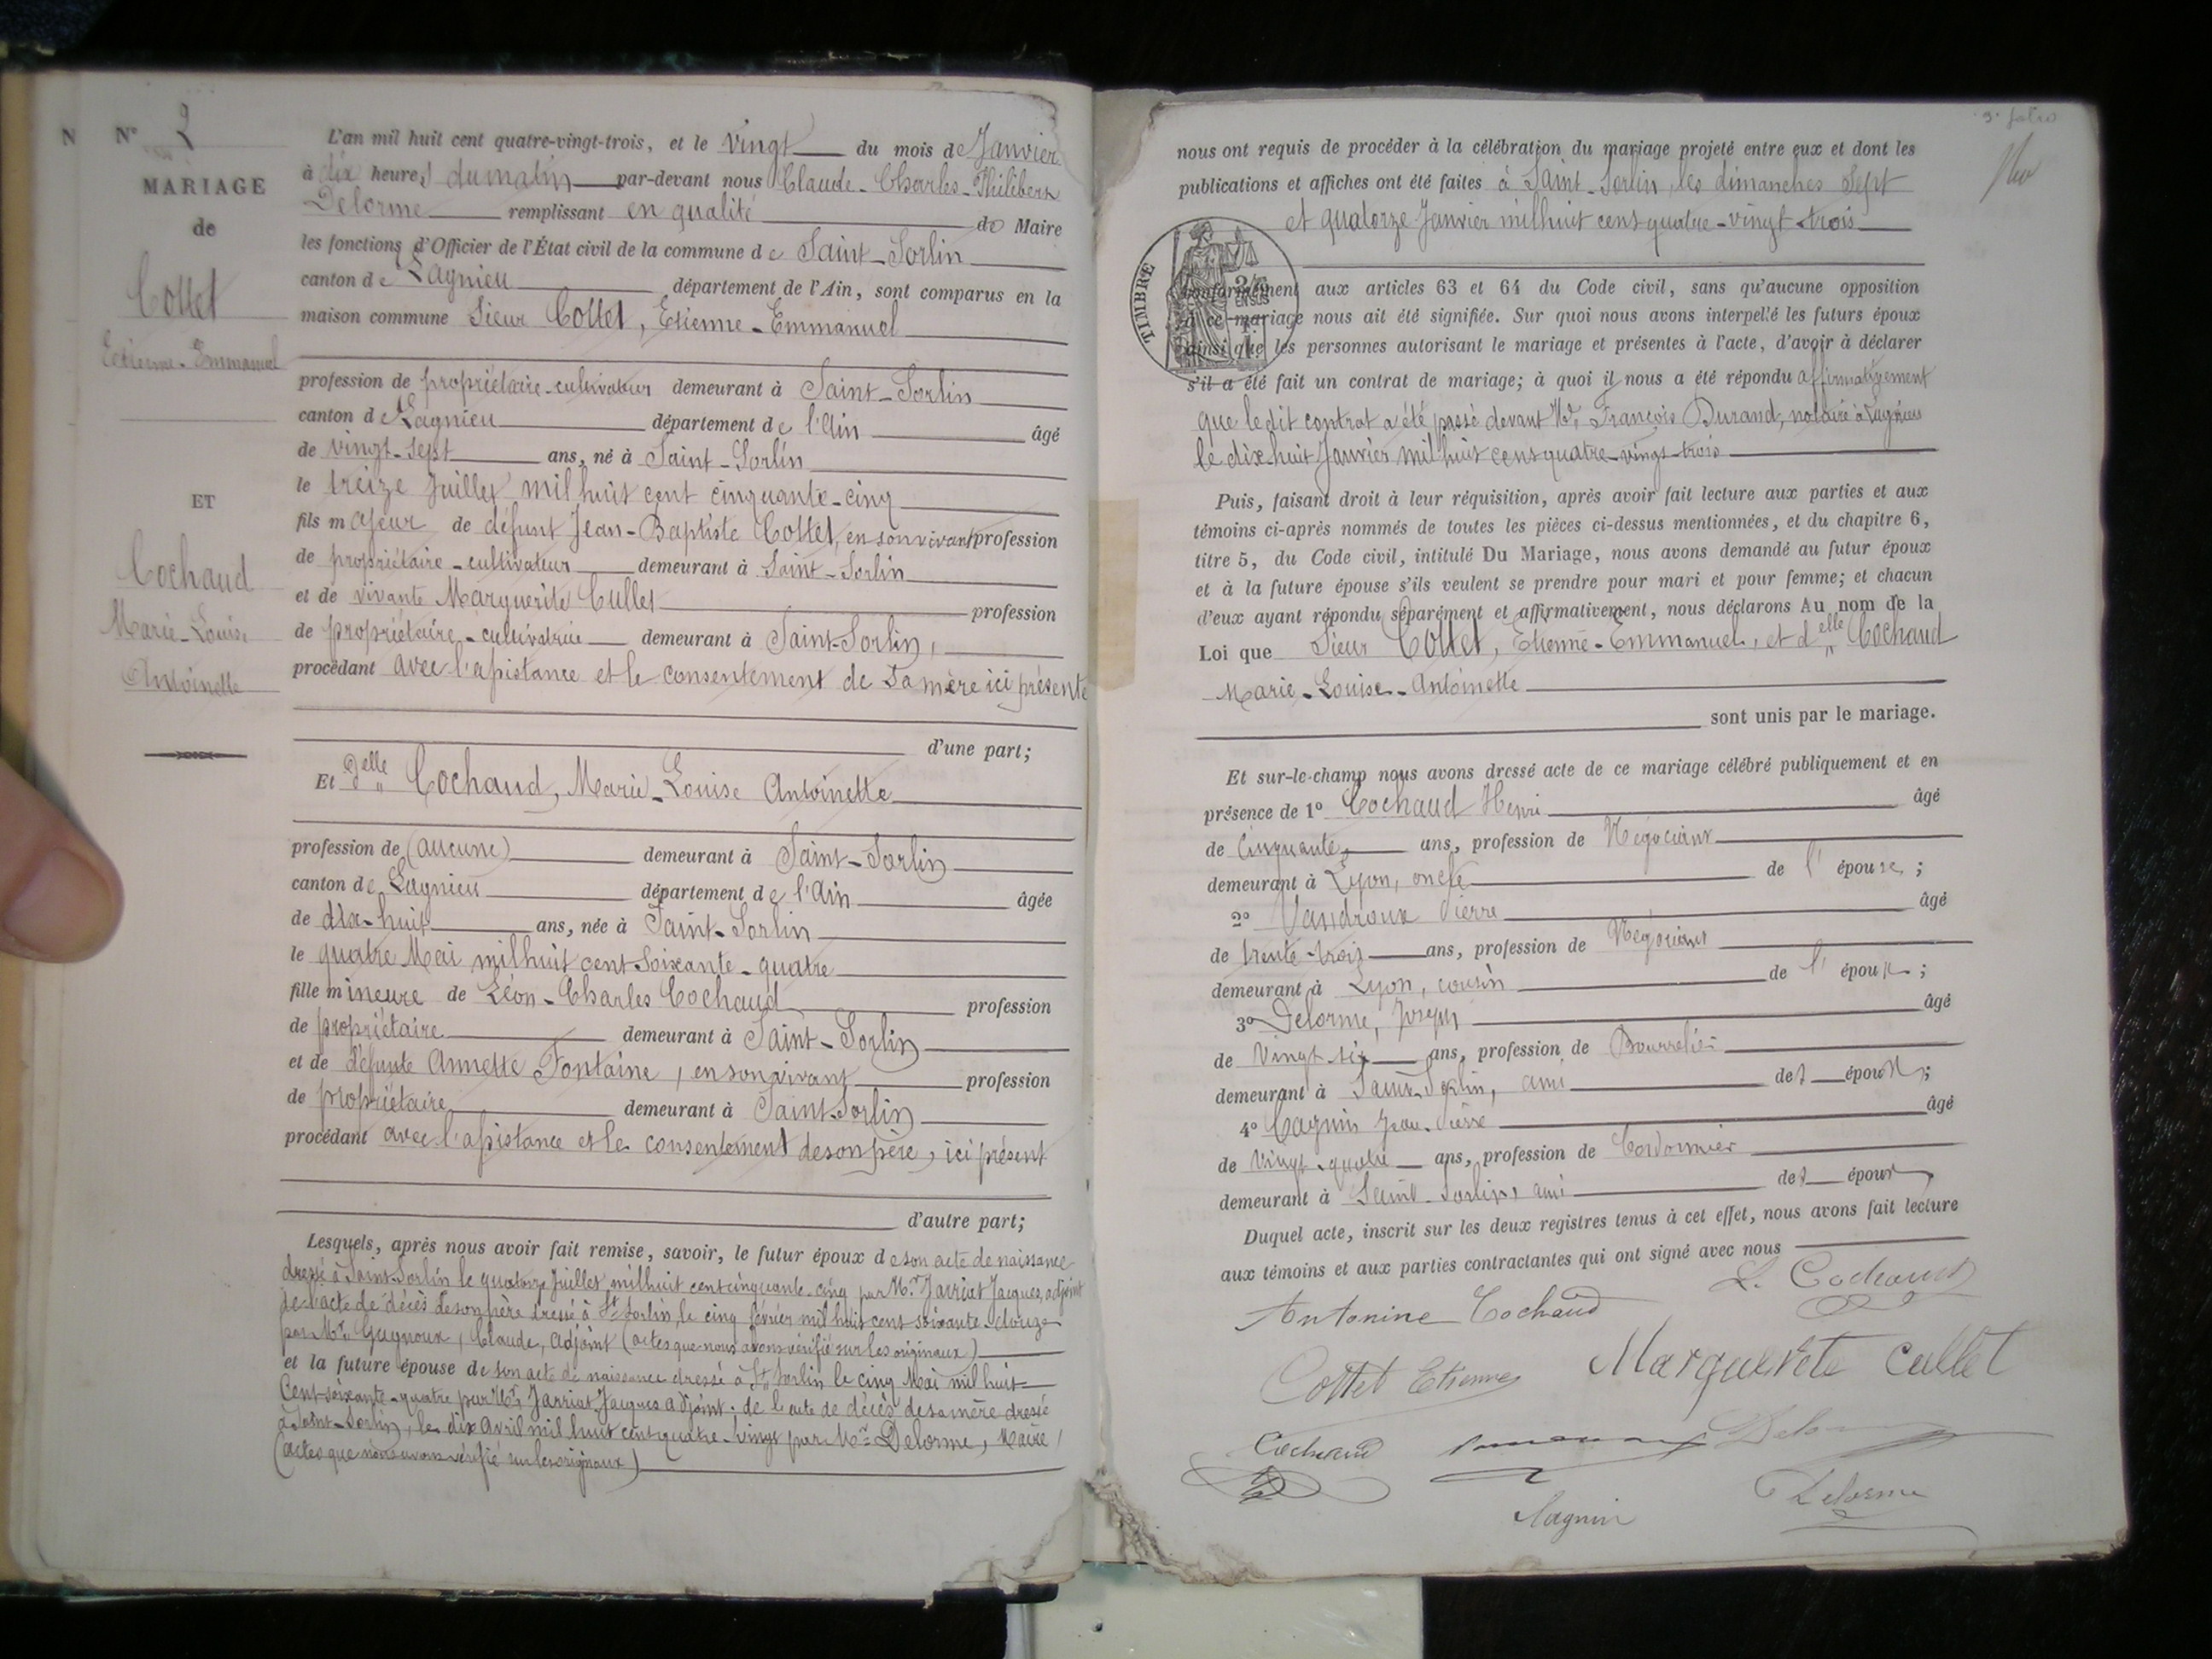 N
N° 2
MARIAGE
de
Cottet
Etienne-Emmanuel
ET
Cochaud
Marie-Louise
Antoinette
L'an mil huit cent quatre-vingt-trois, et le vingt du mois de Janvier
à dix heures du matin par-devant nous Claude-Charles-Philibert
Delorme remplissant en qualité de Maire
les fonctions d'Officier de l'État civil de la commune de Saint-Sorlin
canton de Lagnieu département de l'Ain, sont comparus en la
maison commune Sieur Cottet, Etienne-Emmanuel
profession de propriétaire-cultivateur demeurant à Saint-Sorlin
canton de Lagnieu département de l'Ain âgé
de vingt-sept ans, né à Saint-Sorlin
le treize Juillet mil huit cent cinquante-cinq
fils majeur de défunt Jean-Baptiste Cottet, en son vivant profession
de propriétaire-cultivateur demeurant à Saint-Sorlin
et de vivante Marguerite Cullet profession
de propriétaire-cultivatrice demeurant à Saint-Sorlin,
procédant avec l'assistance et le consentement de sa mère ici présente
d'une part;
Et Delle Cochaud, Marie-Louise Antoinette
profession de (aucune) demeurant à Saint-Sorlin
canton de Lagnieu département de l'Ain âgée
de dix-huit ans, née à Saint-Sorlin
le quatre Mai mil huit cent soixante-quatre
fille mineure de Léon-Charles Cochaud profession
de propriétaire demeurant à Saint-Sorlin
et de défunte Annette Fontaine, en son vivant profession
de propriétaire demeurant à Saint-Sorlin
procédant avec l'assistance et le consentement de son père, ici présent
d'autre part;
Lesquels, après nous avoir fait remise, savoir, le futur époux de son acte de naissance
dressé à Saint-Sorlin le quatorze Juillet mil huit cent cinquante-cinq par Mr. Jarriat Jacques, adjoint
de l'acte de décès de son père dressé à St Sorlin, le cinq février mil huit cent soixante-douze
par Mr. Guynoux, Claude, adjoint (actes que nous avons vérifié sur les originaux)
et la future épouse de son acte de naissance dressé à St Sorlin le cinq Mai mil huit
cent-soixante-quatre par Mr. Jarriat Jacques adjoint; de l'acte de décès de sa mère dressé
à Saint-Sorlin, le dix Avril mil huit cent quatre-vingt par Mr. Delorme, Maire,
(actes que nous avons vérifié sur les originaux)
3e folio
nous ont requis de procéder à la célébration du mariage projeté entre eux et dont les
publications et affiches ont été faites à Saint-Sorlin, les dimanches Sept
et quatorze Janvier mil huit cent quatre-vingt trois
TIMBRE
EN SUS
conformément aux articles 63 et 64 du Code civil, sans qu'aucune opposition
à ce mariage nous ait été signifiée. Sur quoi nous avons interpellé les futurs époux
ainsi que les personnes autorisant le mariage et présentes à l'acte, d'avoir à déclarer
s'il a été fait un contrat de mariage; à quoi il nous a été répondu affirmativement
que le dit contrat a été passé devant Me. François Durand, notaire à Lagnieu
le dix-huit Janvier mil huit cent quatre-vingt-trois
Puis, faisant droit à leur réquisition, après avoir fait lecture aux parties et aux
témoins ci-après nommés de toutes les pièces ci-dessus mentionnées, et du chapitre 6,
titre 5, du Code civil, intitulé Du Mariage, nous avons demandé au futur époux
et à la future épouse s'ils veulent se prendre pour mari et pour femme; et chacun
d'eux ayant répondu séparément et affirmativement, nous déclarons Au nom de la
Loi que Sieur Cottet, Etienne-Emmanuel, et delle Cochaud
Marie-Louise-Antoinette
sont unis par le mariage.
Et sur-le-champ nous avons dressé acte de ce mariage célébré publiquement et en
présence de 1° Cochaud Henri âgé
de Cinquante ans, profession de Négociant
demeurant à Lyon, oncle de l'épouse;
2° Vandroux Pierre âgé
de trente-trois ans, profession de Négociant
demeurant à Lyon, cousin de l'époux;
3° Delorme, Joseph âgé
de Vingt-six ans, profession de Bourrelier
demeurant à Saint-Sorlin, ami des époux;
4° Cagnin Jean-Pierre âgé
de Vingt-quatre ans, profession de Cordonnier
demeurant à Saint-Sorlin, ami des époux
Duquel acte, inscrit sur les deux registres tenus à cet effet, nous avons fait lecture
aux témoins et aux parties contractantes qui ont signé avec nous
L. Cochaud
Antonine Cochaud
Cottet Etienne
Marguerete Cullet
Cochaud
Delorme
Cagnin
Delorme